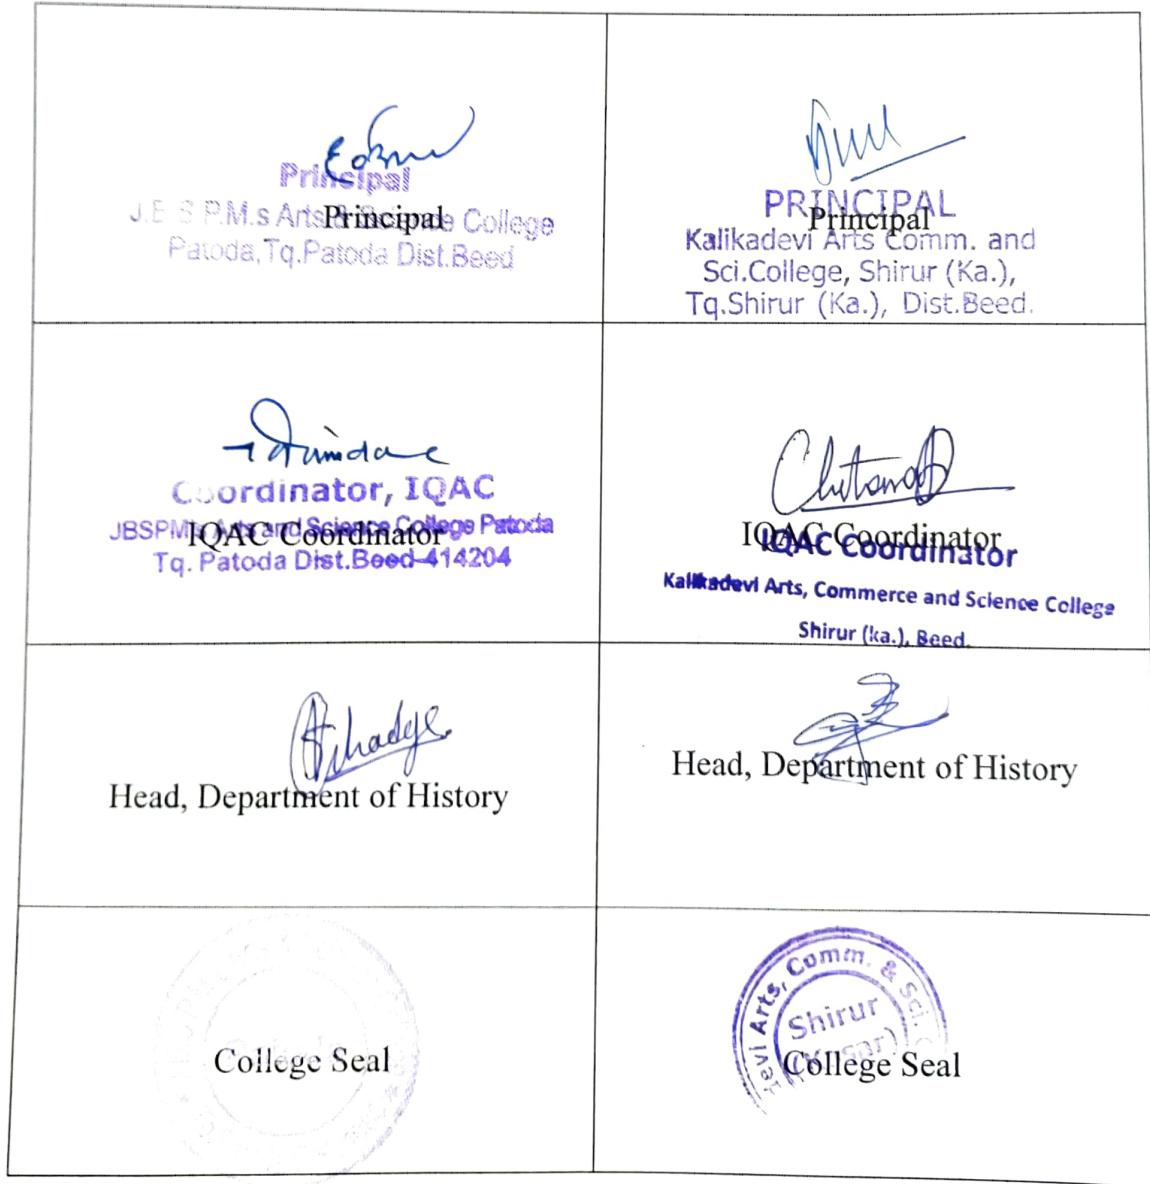 Principal
J.B.S.P.M.s Arts & Science College
Patoda,Tq.Patoda Dist.Beed
Principal
PRINCIPAL
Kalikadevi Arts Comm. and
Sci.College, Shirur (Ka.),
Tq.Shirur (Ka.), Dist.Beed.
Principal
Coordinator, IQAC
JBSPM's Arts and Science College Patoda
Tq. Patoda Dist.Beed-414204
IQAC Coordinator
IQAC Coordinator
IQAC Coordinator
Kalikadevi Arts, Commerce and Science College
Shirur (ka.), Beed.
Head, Department of History
Head, Department of History
College Seal
devi Arts, Comm. & Sci.
Shirur
(Kasar)
College Seal